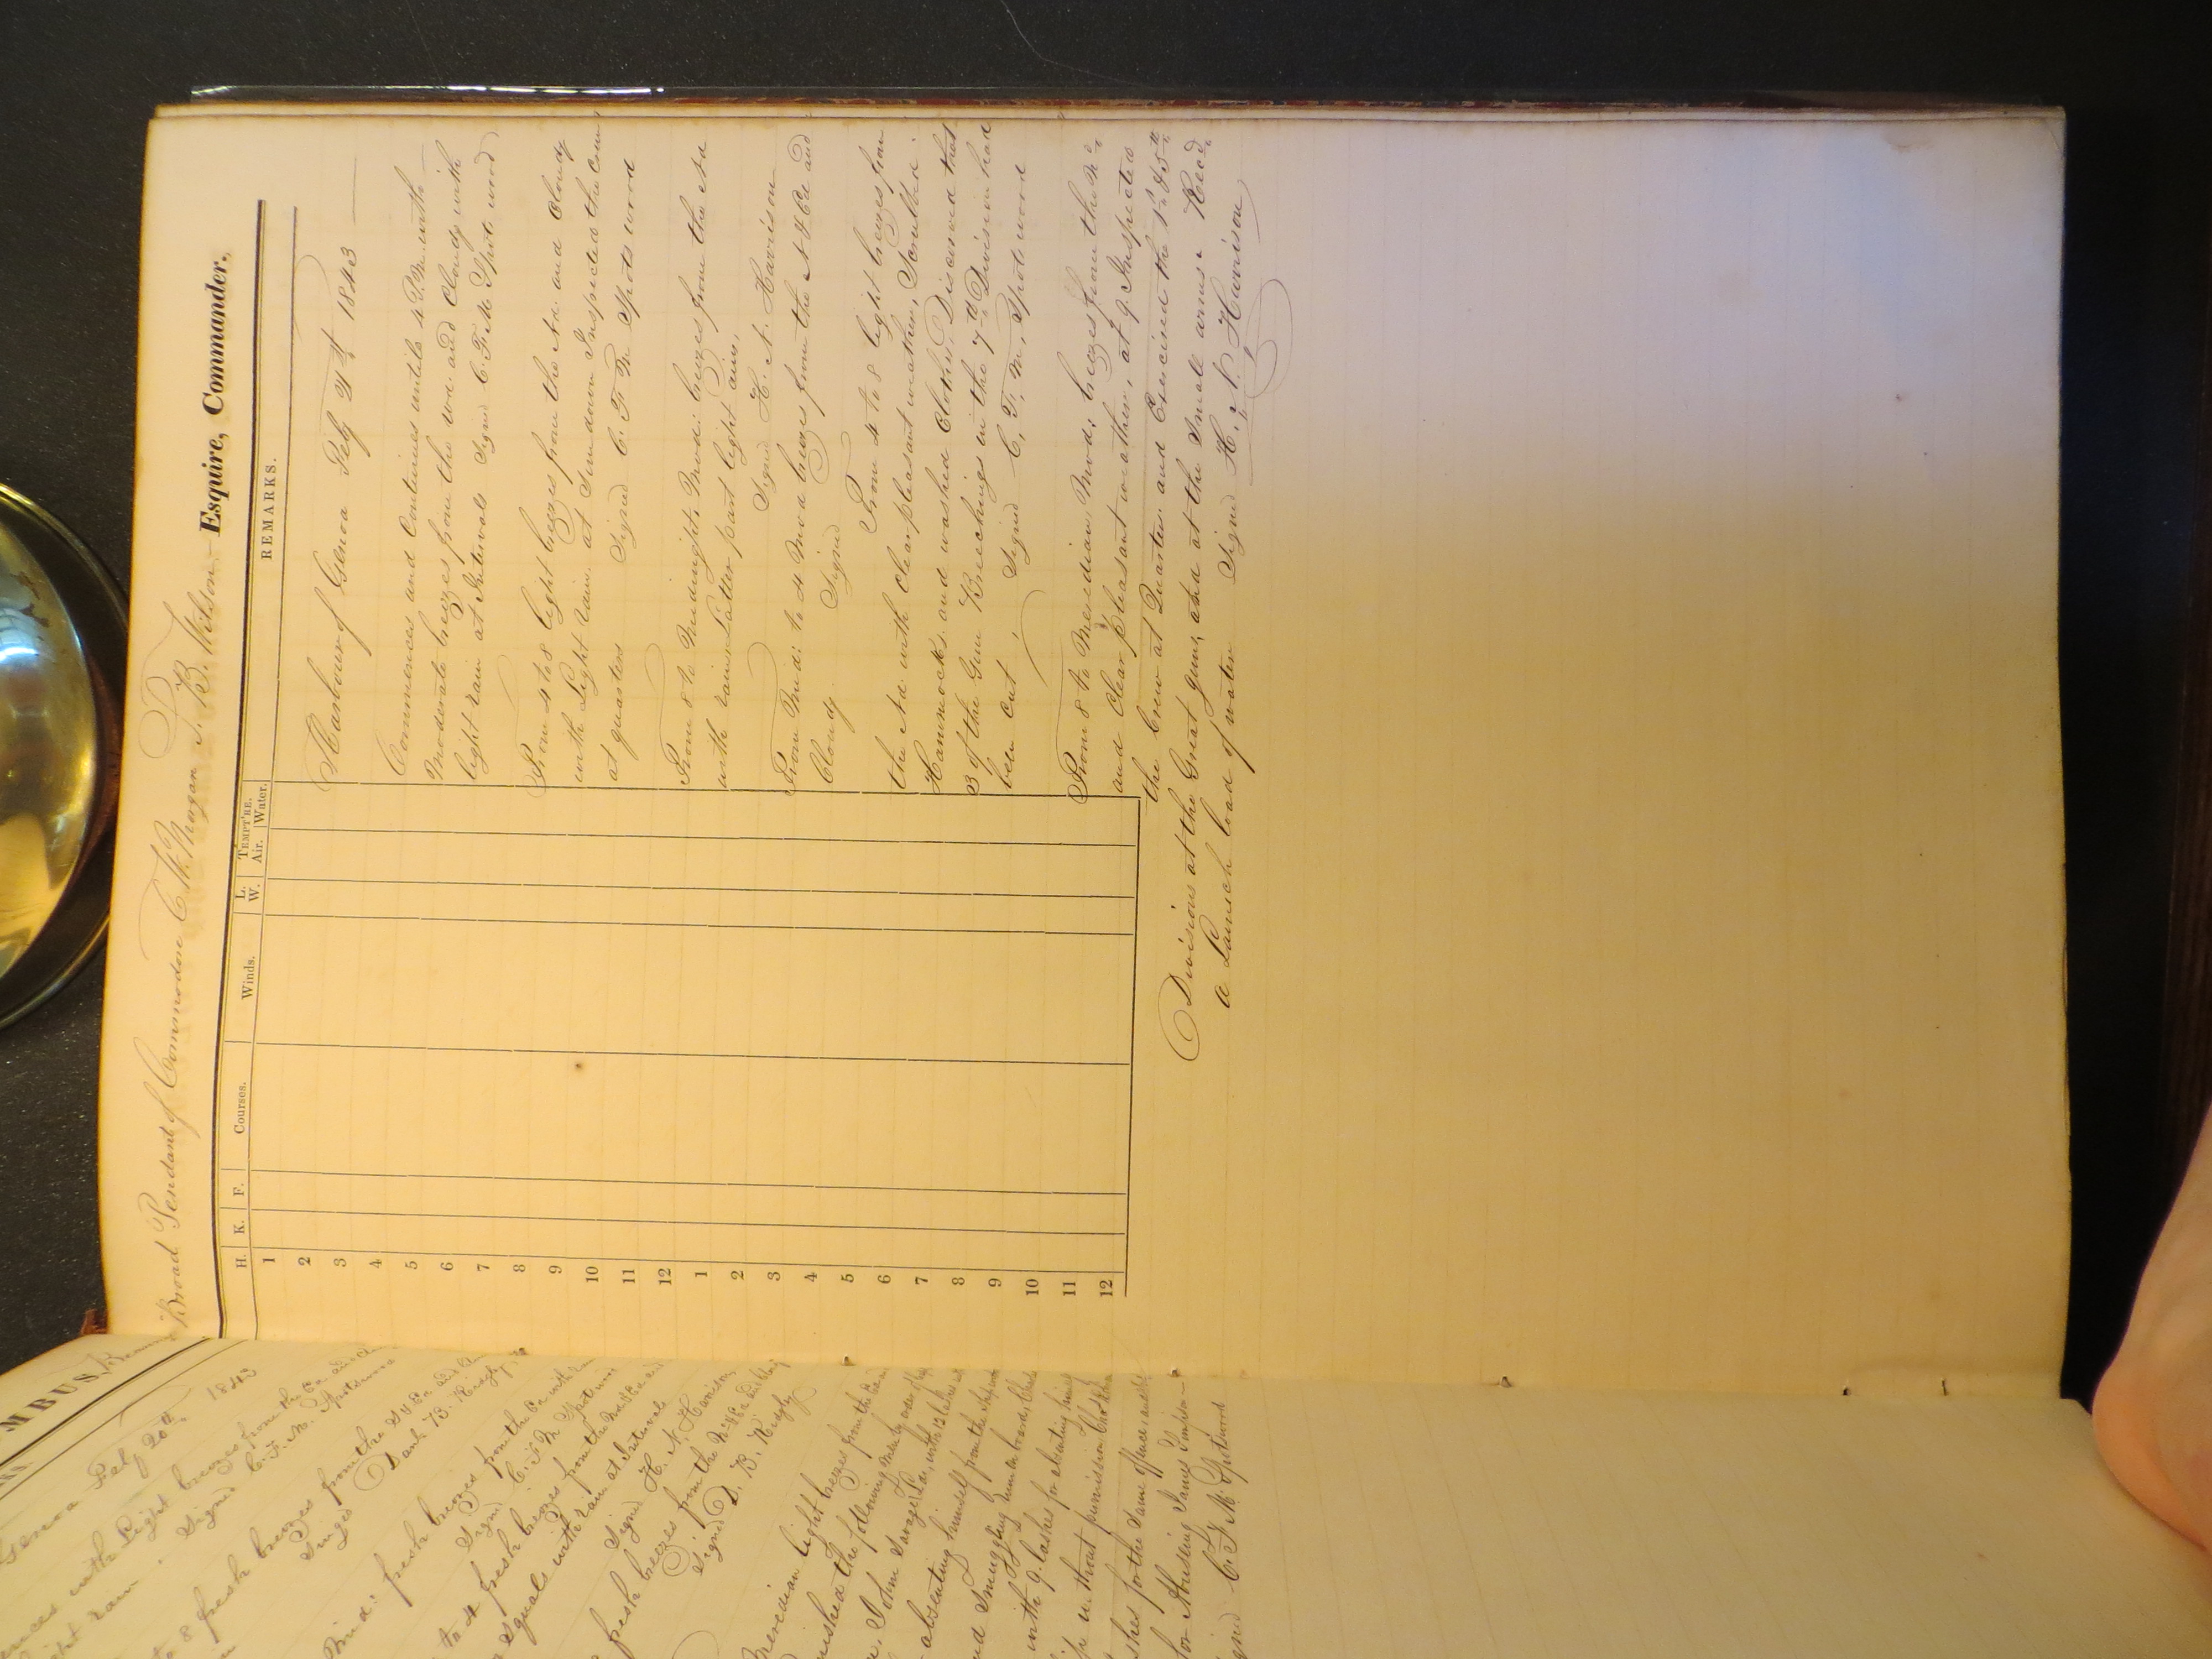 MBUS,
Genoa Feby 20th 1843
with Light breezes from the
light rain. Signed C. F. M. Spotswood
to 8 fresh breezes from the
Signed Danl B. Ridgly
Mid: fresh breezes from the
Signed C. F. M. Spotswood
to 4 fresh breezes from the
squals with rain at Intervals
Signed H. N. Harrison
fresh breezes from the
Signed D. B. Ridgly
Meredian light breezes from the
the following men by
John Savage
absenting himself from the ship
and Smuggling
with 9 lashes for absenting
without permission
for the same offence
for Abusing James
Signed C. F. M. Spotswood
Broad Pendant of Commodore C. W. Morgan J. B. Wilson Esquire, Commander,
H. K. F. Courses. Winds. L. W. TEMPT'RE. Air. Water. REMARKS.
1
2
3
4
5
6
7
8
9
10
11
12
1
2
3
4
5
6
7
8
9
10
11
12
Harbour of Genoa Feby 21st 1843
Commences and Continues until 4 P.M. with
Moderate breezes from the Wd. and Cloudy with
light rain at Intervals Signd C. F. M. Spotswood
From 4 to 8 light breezes from the and Cloudy
with Light rain. at Sundown Inspected the Crew
at quarters Signed C. F. M Spotswood
From 8 to Midnight, Mod: breezes from the Nd
with rain Latter part light airs,
Signed H. N. Harrison
From Mid: to 4 Mod breezes from the N & Ed and
Cloudy. Signed
From 4 to 8 light breezes from
the Nd. with Clear pleasant weather, Scrubbed
Hammocks. and washed Clothes. Discovered that
3 of the Gun Breechings in the 7th Division had
been Cut. Signed C. F. M. Spotswood
From 8 to Meredian, Mod; breezes from the
and Clear pleasant weather, at 9. Inspected
the Crew at Quarters. and Exercised the 1st & 5th
Divisions at the Great guns, and at the Small arms. Recd.
a Launch load of water Signed H. N. Harrison